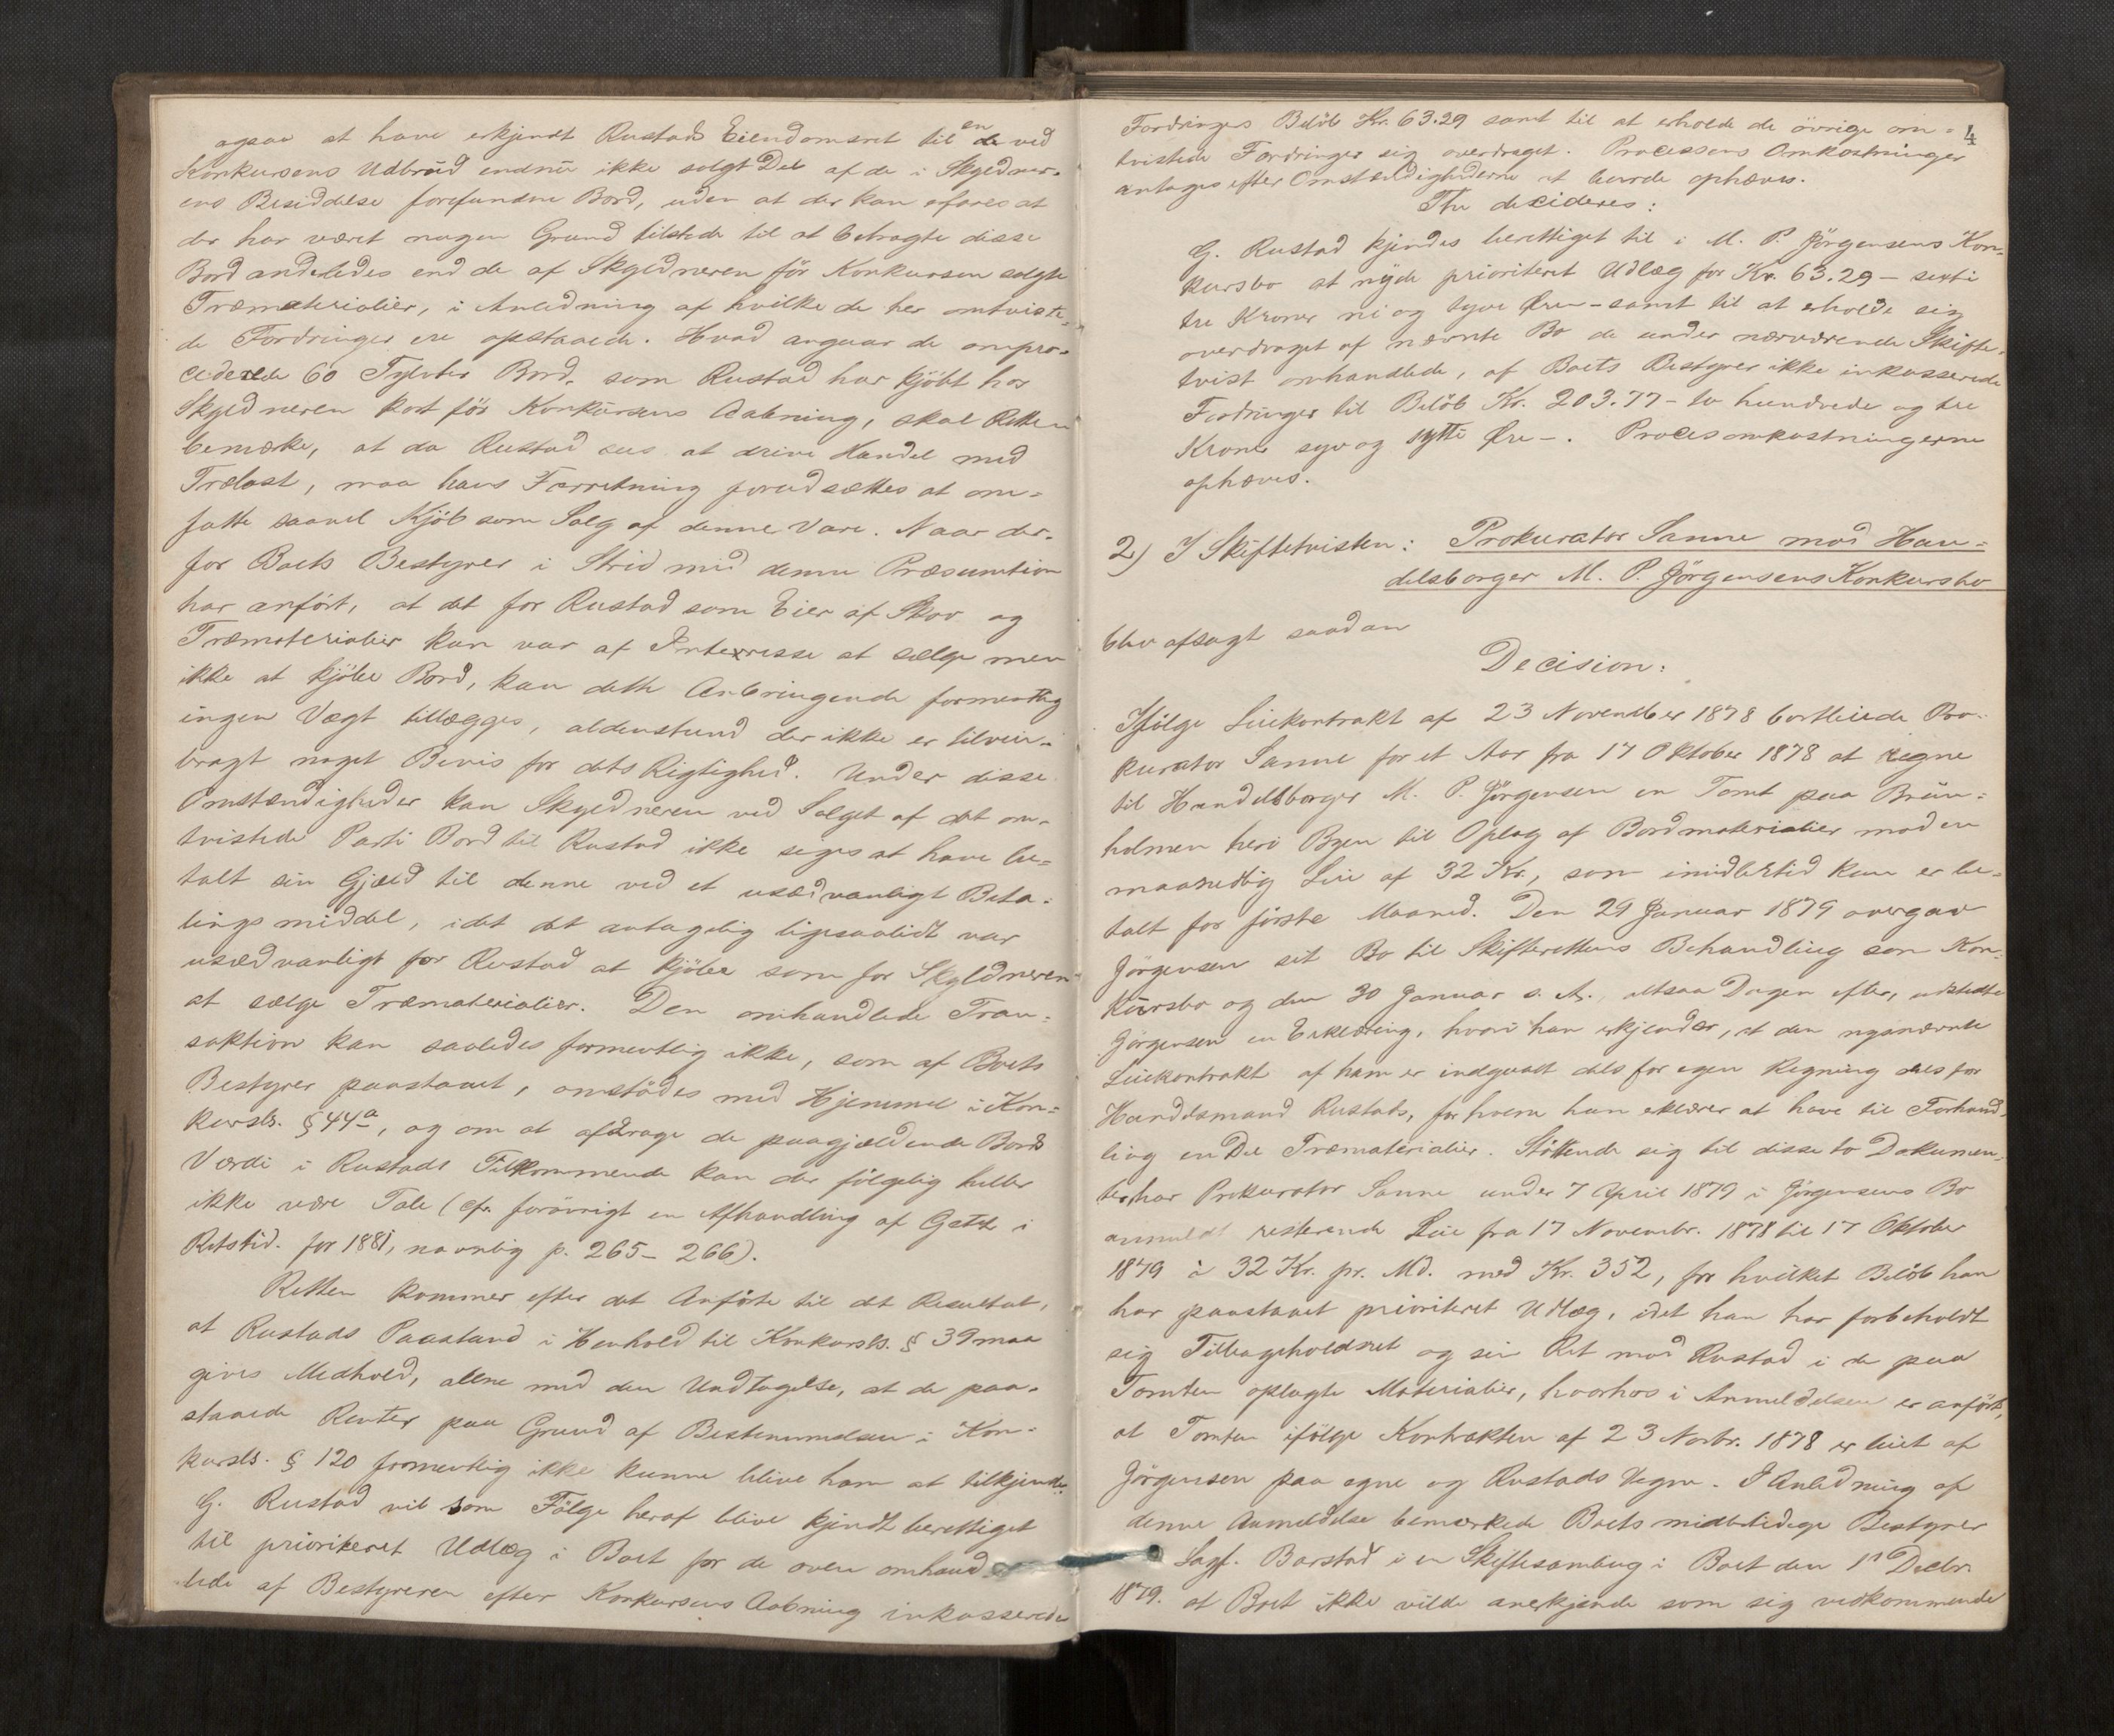 ogsaa at have erkjendt Rustads Eiendomsret til en de ved
Konkursens Udbrud endnu ikke solgt Del af de i Skyldner-
ens Besiddelse forefundne Bord, uden at der kan sees at
der har været nogen Grund tilstede til at betragte disse
Bord anderledes end de af Skyldneren för Konkursen solgte
Træmaterialier, i Anledning af hvilke de her omtviste-
de Fordringer ere opstaaede. Hvad angaar de ompro-
cederede 60 Tylvter Bord, som Rustad har kjöbt hos
Skyldneren kort för Konkursens Aabning, skal Retten
bemærke, at da Rustad sees at drive Handel med
Trælast, maa hans Forretning forudsættes at om-
fatte saavel Kjöb som Salg af denne Vare. Naar der-
for Boets Bestyrer i Strid med denne Præsumtion
har anfört, at det for Rustad som Eier af Skov og
Træmaterialier kun var af Interesse at sælge men
ikke at kjöbe Bord, kan dette Anbringende formentlig
ingen Vægt tillægges, aldenstund der ikke er tilveie-
bragt noget Bevis for dets Rigtighed. Under disse
Omstændigheder kan Skyldneren ved Salget af det om-
tvistede Parti Bord til Rustad ikke siges at have be-
talt sin Gjæld til denne ved et usædvanligt Beta-
lingsmiddel, idet det antagelig ligesaalidt var
usædvanligt for Rustad at kjöbe som for Skyldneren
at sælge Træmaterialier. Den omhandlede Tran-
saktion kan saaledes formentlig ikke, som af Boets
Bestyrer paastaaet, omstödes med Hjemmel i Kon-
kursls. § 44 a, og om at afdrage de paagjældende Bords
Værdi i Rustads Tilkommende kan der fölgelig heller
ikke være Tale (cfr. forövrigt en Afhandling af Getz i
Retstid. for 1881, navnlig p. 265 - 266).
Retten kommer efter det Anförte til det Resultat,
at Rustads Paastand i Henhold til Konkursls. § 39 maa
gives Medhold, alene med den Undtagelse, at de paa-
staaede Renter paa Grund af Bestemmelsen i Kon-
kursls. § 120 formentlig ikke kunne blive ham at tilkjende.
G. Rustad vil som Fölge heraf blive kjendt berettiget
til prioriteret Udlæg i Boet for de oven omhand-
lede af Bestyreren efter Konkursens Aabning inkasserede
4
Fordringers Belöb Kr. 63.29 samt til at erholde de övrige om-
tvistede Fordringer sig overdraget. Processens Omkostninger
antages efter Omstændighederne at burde ophæves.
Thi decideres:
G. Rustad kjendes berettiget til i M. P. Jörgensens Kon-
kursbo at nyde prioriteret Udlæg for Kr. 63.29 - sexti
tre Kroner ni og tyve Öre - samt til at erholde sig
overdraget af nævnte Bo de under nærværende Skifte-
tvist omhandlede, af Boets Bestyrer ikke inkasserede
Fordringer til Belöb Kr. 203.77 - to hundrede og tre
Kroner syv og sytti Öre -. Procesomkostningerne
ophæves.
2) I Skiftetvisten: Prokurator Sanne mod Han-
delsborger M. P. Jörgensens Konkursbo
blev afsagt saadan
Decision:
Ifölge Leiekontrakt af 23 November 1878 bortleiede Pro-
kurator Sanne for et Aar fra 17 Oktober 1878 at regne
til Handelsborger M. P. Jörgensen en Tomt paa Bruun-
holmen heri Byen til Oplag af Bordmaterialier mod en
maanedlig Leie af 32 Kr., som imidlertid kun er be-
talt for förste Maaned. Den 29 Januar 1879 overgav
Jörgensen sit Bo til Skifterettens Behandling som Kon-
kursbo og den 30 Januar s. A., altsaa Dagen efter, udstedte
Jörgensen en Erklæring, hvori han erkjender, at den nysnævnte
Leiekontrakt af ham er indgaaet dels for egen Regning dels for
Handelsmand Rustads, for hvem han erklærer at have til Forhand-
ling en Del Træmaterialier. Stöttende sig til disse to Dokumen-
ter, har Prokurator Sanne under 7 April 1879 i Jörgensens Bo
anmeldt resterende Leie fra 17 Novembr. 1878 til 17 Oktober
1879 à 32 Kr. pr. Md. med Kr. 352, for hvilket Belöb han
har paastaaet prioriteret Udlæg, idet han har forbeholdt
sig Tilbageholdsret og sin Ret mod Rustad i de paa
Tomten oplagte Materialier, hvorhos i Anmeldelsen er anfört,
at Tomten ifölge Kontrakten af 23 Novbr. 1878 er leiet af
Jörgensen paa egne og Rustads Vegne. I Anledning af
denne Anmeldelse bemærkede Boets midlertidige Bestyrer
Sagf. Barstad i en Skiftesamling i Boet den 1 Decbr.
1879, at Boet ikke vilde anerkjende som sig vedkommende